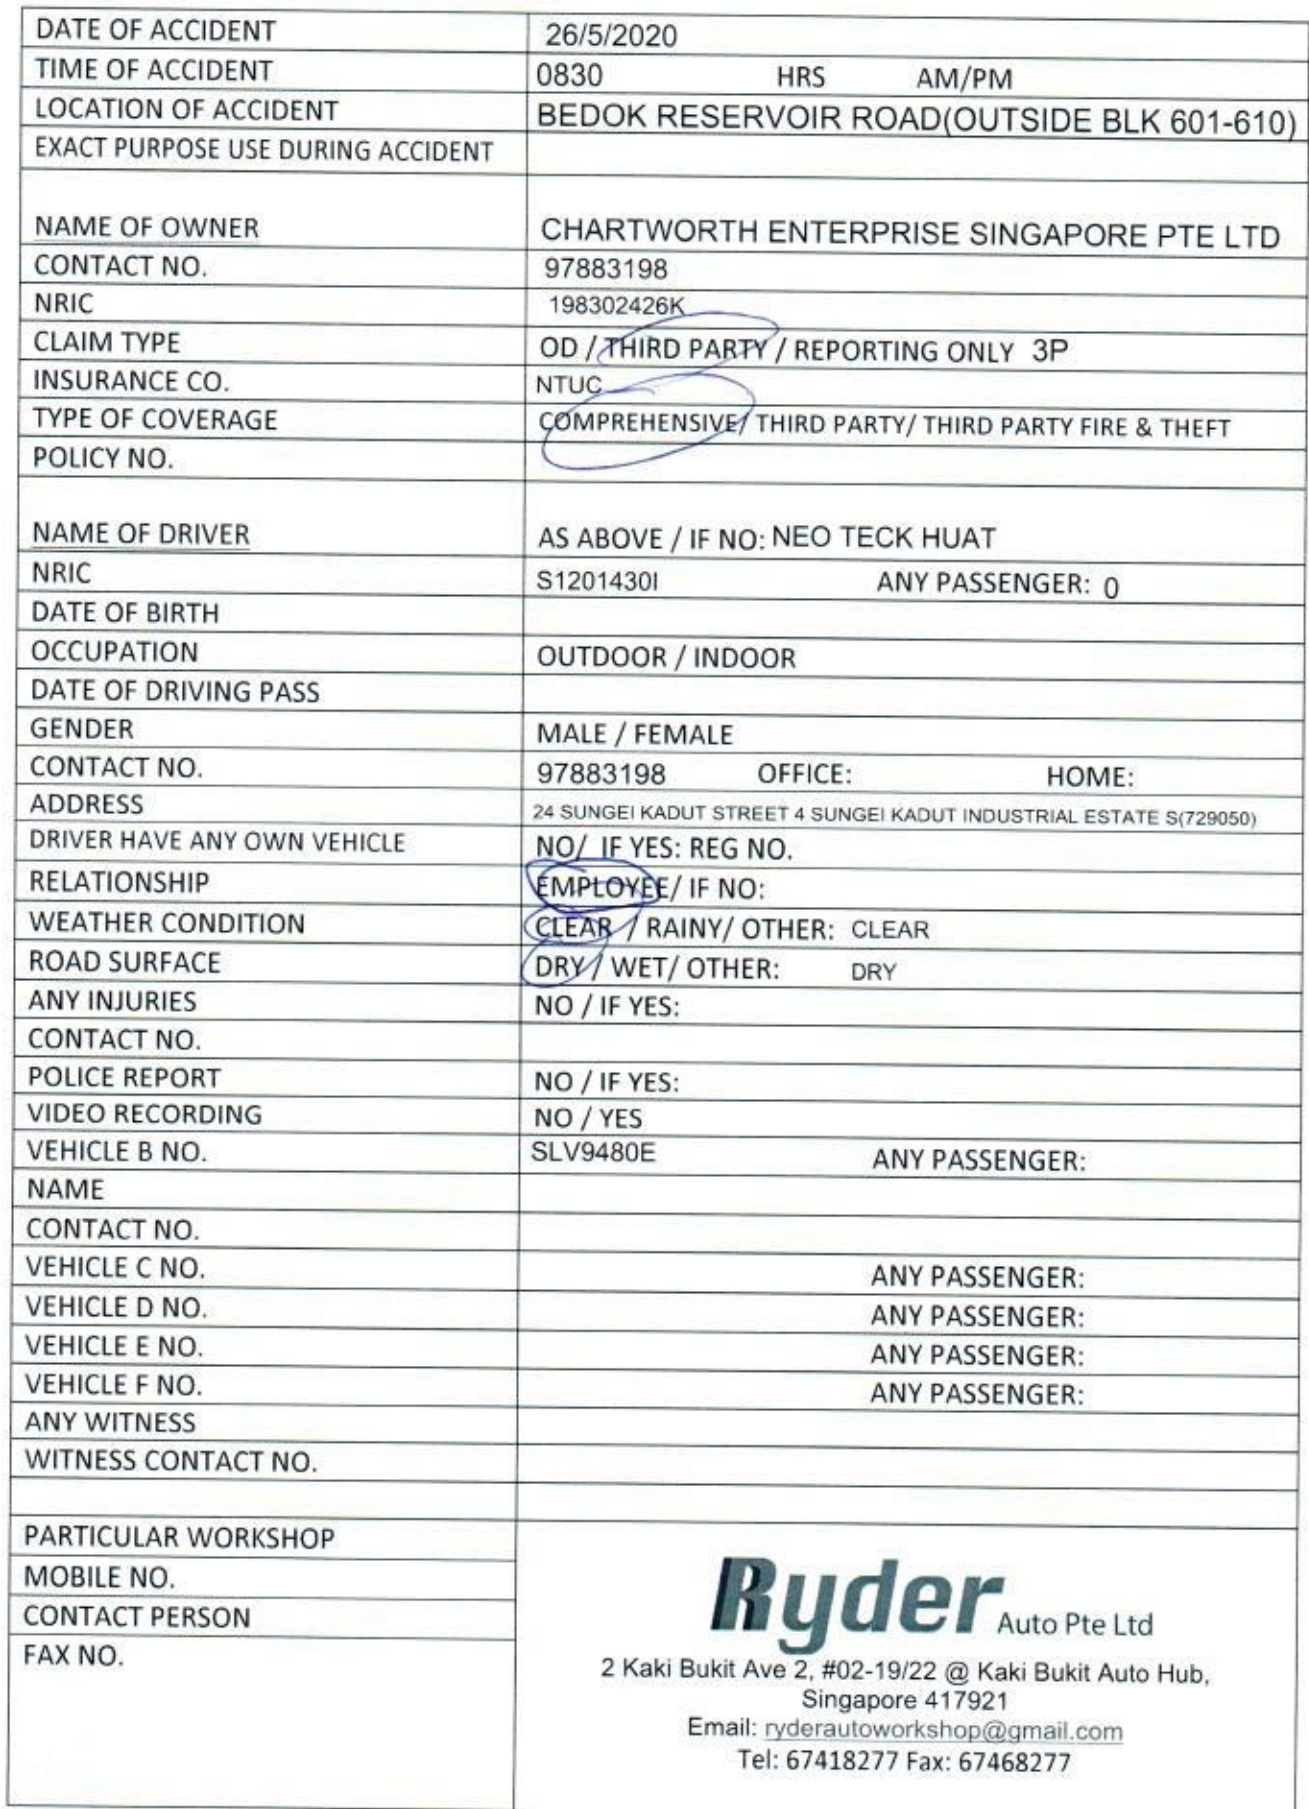 DATE OF ACCIDENT 26/5/2020
TIME OF ACCIDENT 0830 HRS AM/PM
LOCATION OF ACCIDENT BEDOK RESERVOIR ROAD(OUTSIDE BLK 601-610)
EXACT PURPOSE USE DURING ACCIDENT
NAME OF OWNER CHARTWORTH ENTERPRISE SINGAPORE PTE LTD
CONTACT NO. 97883198
NRIC 198302426K
CLAIM TYPE OD / THIRD PARTY / REPORTING ONLY 3P
INSURANCE CO. NTUC
TYPE OF COVERAGE COMPREHENSIVE/ THIRD PARTY/ THIRD PARTY FIRE & THEFT
POLICY NO.
NAME OF DRIVER AS ABOVE / IF NO: NEO TECK HUAT
NRIC S1201430I ANY PASSENGER: 0
DATE OF BIRTH
OCCUPATION OUTDOOR / INDOOR
DATE OF DRIVING PASS
GENDER MALE / FEMALE
CONTACT NO. 97883198 OFFICE: HOME:
ADDRESS 24 SUNGEI KADUT STREET 4 SUNGEI KADUT INDUSTRIAL ESTATE S(729050)
DRIVER HAVE ANY OWN VEHICLE NO/ IF YES: REG NO.
RELATIONSHIP EMPLOYEE/ IF NO:
WEATHER CONDITION CLEAR / RAINY/ OTHER: CLEAR
ROAD SURFACE DRY / WET/ OTHER: DRY
ANY INJURIES NO / IF YES:
CONTACT NO.
POLICE REPORT NO / IF YES:
VIDEO RECORDING NO / YES
VEHICLE B NO. SLV9480E ANY PASSENGER:
NAME
CONTACT NO.
VEHICLE C NO. ANY PASSENGER:
VEHICLE D NO. ANY PASSENGER:
VEHICLE E NO. ANY PASSENGER:
VEHICLE F NO. ANY PASSENGER:
ANY WITNESS
WITNESS CONTACT NO.
PARTICULAR WORKSHOP
MOBILE NO.
CONTACT PERSON
FAX NO.
Ryder Auto Pte Ltd
2 Kaki Bukit Ave 2, #02-19/22 @ Kaki Bukit Auto Hub,
Singapore 417921
Email: ryderautoworkshop@gmail.com
Tel: 67418277 Fax: 67468277